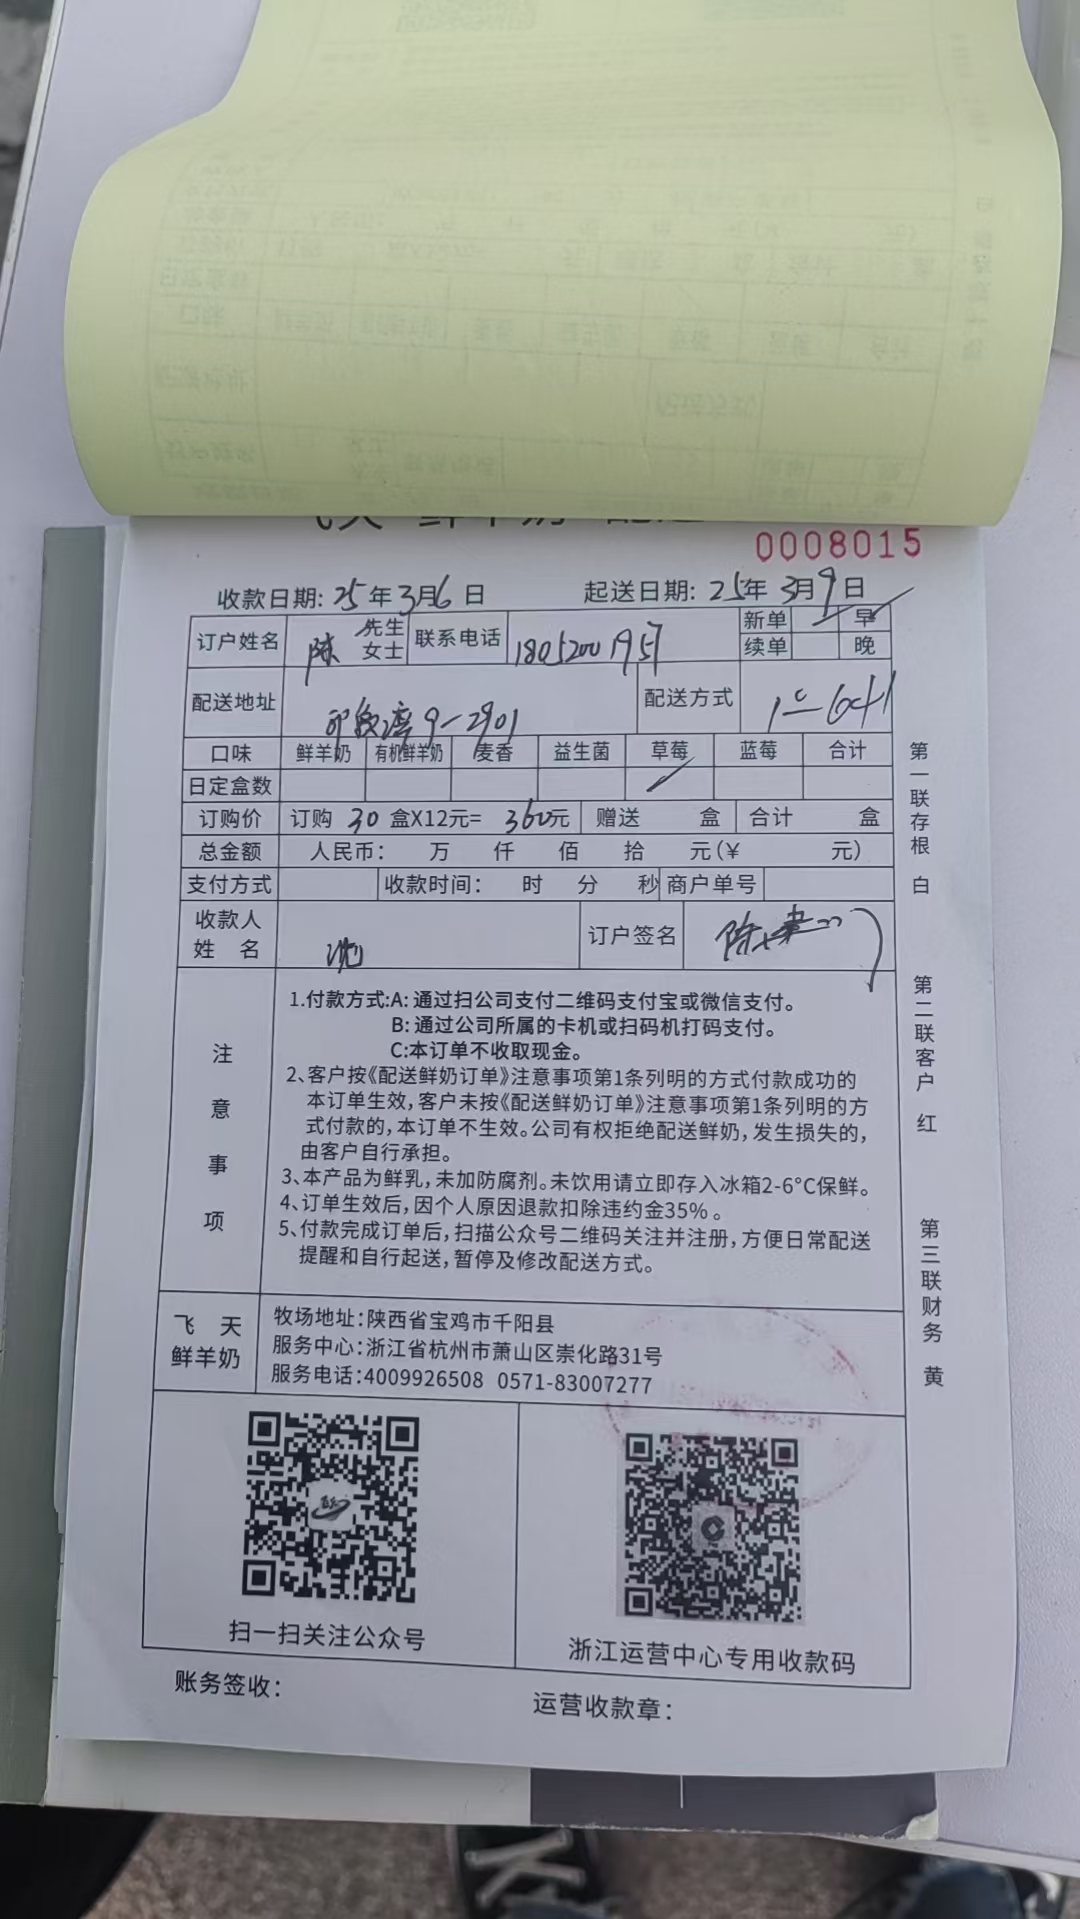 0008015
收款日期: 25年3月6日 起送日期: 25年3月9日
订户姓名 陈 先生 女士 联系电话 新单 早
续单 晚
配送地址 9-2901 配送方式
口味 鲜羊奶 有机鲜羊奶 麦香 益生菌 草莓 蓝莓 合计
日定盒数
订购价 订购 30 盒X12元= 360元 赠送 盒 合计 盒
总金额 人民币: 万 仟 佰 拾 元(¥ 元)
支付方式 收款时间: 时 分 秒 商户单号
收款人
姓 名 沈 订户签名 陈
注意事项
1.付款方式:A:通过扫公司支付二维码支付宝或微信支付。
B:通过公司所属的卡机或扫码机打码支付。
C:本订单不收取现金。
2、客户按《配送鲜奶订单》注意事项第1条列明的方式付款成功的
本订单生效,客户未按《配送鲜奶订单》注意事项第1条列明的方
式付款的,本订单不生效。公司有权拒绝配送鲜奶,发生损失的,
由客户自行承担。
3、本产品为鲜乳,未加防腐剂。未饮用请立即存入冰箱2-6°C保鲜。
4、订单生效后,因个人原因退款扣除违约金35%。
5、付款完成订单后,扫描公众号二维码关注并注册,方便日常配送
提醒和自行起送,暂停及修改配送方式。
飞 天
鲜羊奶
牧场地址:陕西省宝鸡市千阳县
服务中心:浙江省杭州市萧山区崇化路31号
服务电话:4009926508 0571-83007277
扫一扫关注公众号
浙江运营中心专用收款码
账务签收:
运营收款章:
第一联存根 白
第二联客户 红
第三联财务 黄